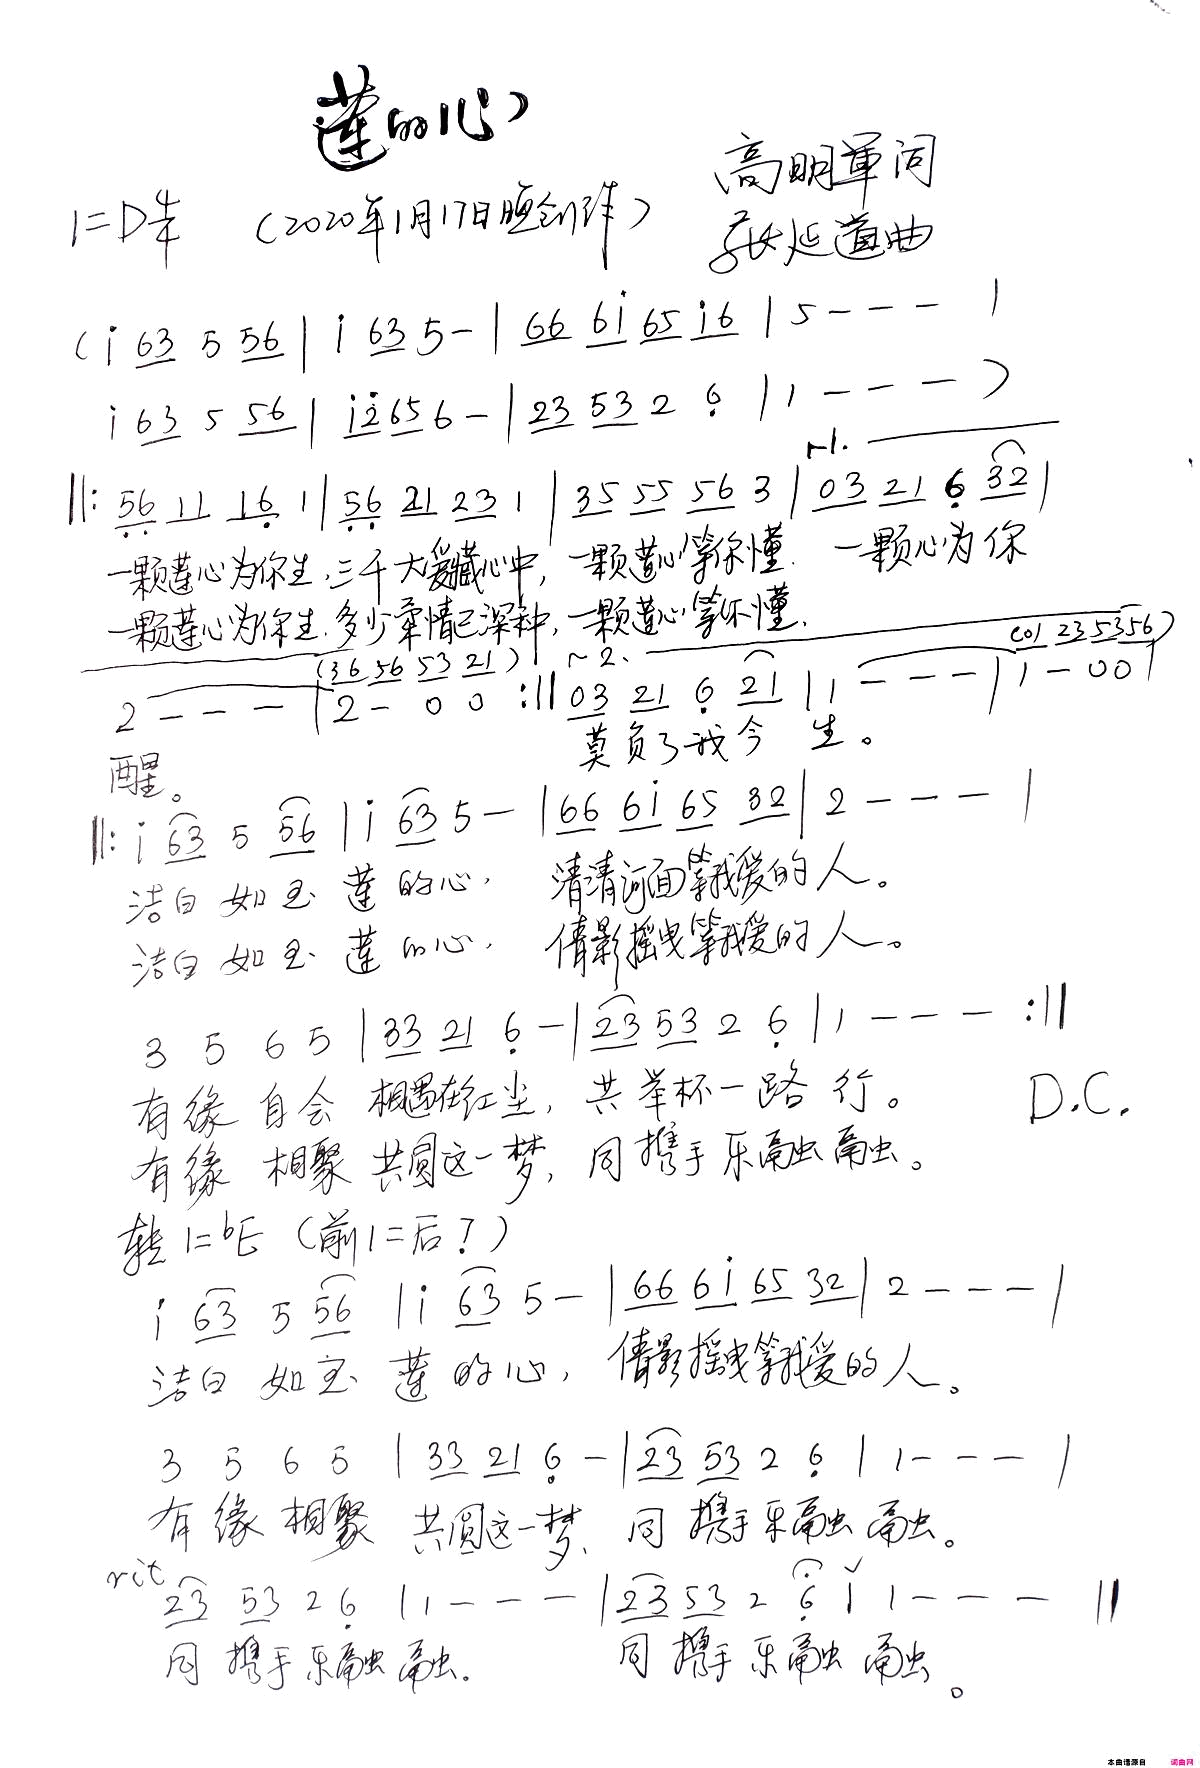 莲的心
高明军词
1=D 4/4 (2020年1月17日晚创作)
张延道曲
(i 63 5 56 | i 63 5 - | 66 6i 65 i6 | 5 - - - |
i 63 5 56 | i2 65 6 - | 23 53 2 6 | 1 - - - )
1.
||: 56 11 16 1 | 56 21 23 1 | 35 55 56 3 | 03 21 6 32 |
一颗莲心为你生,三千大爱藏心中,一颗莲心等你懂. 一颗心为你
一颗莲心为你生.多少柔情已深种,一颗莲心等你懂.
(36 56 53 21) ~2. (01 235356)
2 - - - | 2 - 0 0 :|| 03 21 6 21 | 1 - - - | 1 - 0 0 |
醒。 莫负了我今生。
||: i 63 5 56 | i 63 5 - | 66 6i 65 32 | 2 - - - |
洁白如玉莲的心, 清清河面等我爱的人。
洁白如玉莲的心, 倩影摇曳等我爱的人。
3 5 6 5 | 33 21 6 - | 23 53 2 6 | 1 - - - :||
有缘自会相遇在红尘,共举杯一路行。 D.C.
有缘相聚共圆这一梦,同携手乐融融。
转1=bE (前1=后7)
i 63 5 56 | i 63 5 - | 66 6i 65 32 | 2 - - - |
洁白如玉莲的心,倩影摇曳等我爱的人。
3 5 6 5 | 33 21 6 - | 23 53 2 6 | 1 - - - |
有缘相聚共圆这一梦,同携手乐融融。
rit
23 53 2 6 | 1 - - - | 23 53 2 6 | 1 - - - ||
同携手乐融融. 同携手乐融融。
本曲谱源自 词曲网